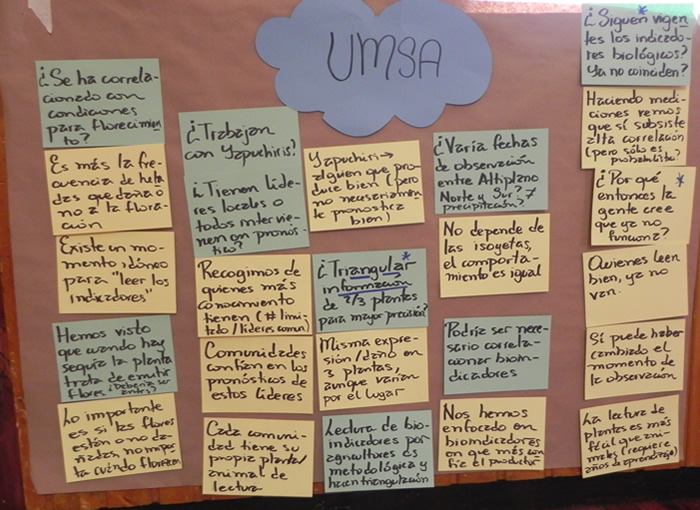 UMSA
¿Se ha correla-
cionado con
condiciones
para florecimien
to?
Es más la fre
cuencia de hela
das que daña o
no a la flora-
ción
Existe un mo-
mento idóneo
para "leer los
indicadores"
Hemos visto
que cuando hay
sequía la planta
trata de emitir
flores ¿Debería ser
antes?
Lo importante
es si las flores
están o no da-
ñadas, no impor
ta cuándo florecen
¿Trabajan
con Yapuchiris?
¿Tienen líde
res locales o
todos intervie
nen en pronós
tico?
Recogimos de
quienes más
conocimiento
tienen (# limi
tado/líderes comun)
Comunidades
confían en los
pronósticos de
estos líderes
Cada comuni
dad tiene su
propia planta/
animal de
lectura
Yapuchiri→
alguien que pro
duce bien (pero
no necesariamen
te pronostica
bien)
¿Triangular *
información
de 2/3 plantas
para mayor precisión?
Misma expre
sión/daño en
3 plantas,
aunque varían
por el lugar
Lectura de bio-
indicadores por
agricultores es
metodológica y
hacen triangulación
¿Varía fechas
de observación
entre Altiplano
Norte y Sur? ≠
precipitación?
No depende de
las isoyetas,
el comporta-
miento es igual
Podría ser nece-
sario correla-
cionar bioin-
dicadores
Nos hemos
enfocado en
bioindicadores
en que más con
fía el productor
¿Siguen * vigen
tes los indicado-
res biológicos?
Ya no coinciden?
Haciendo medi
ciones vemos
que sí subsiste
alta correlación
(pero sólo es
probabilista)
¿Por qué *
entonces la
gente cree
que ya no
funciona?
Quienes leen
bien, ya no
van.
Sí puede haber
cambiado el
momento de
la observación
La lectura de
plantas es más
fácil que ani
males (requiere
años de aprendizaje)